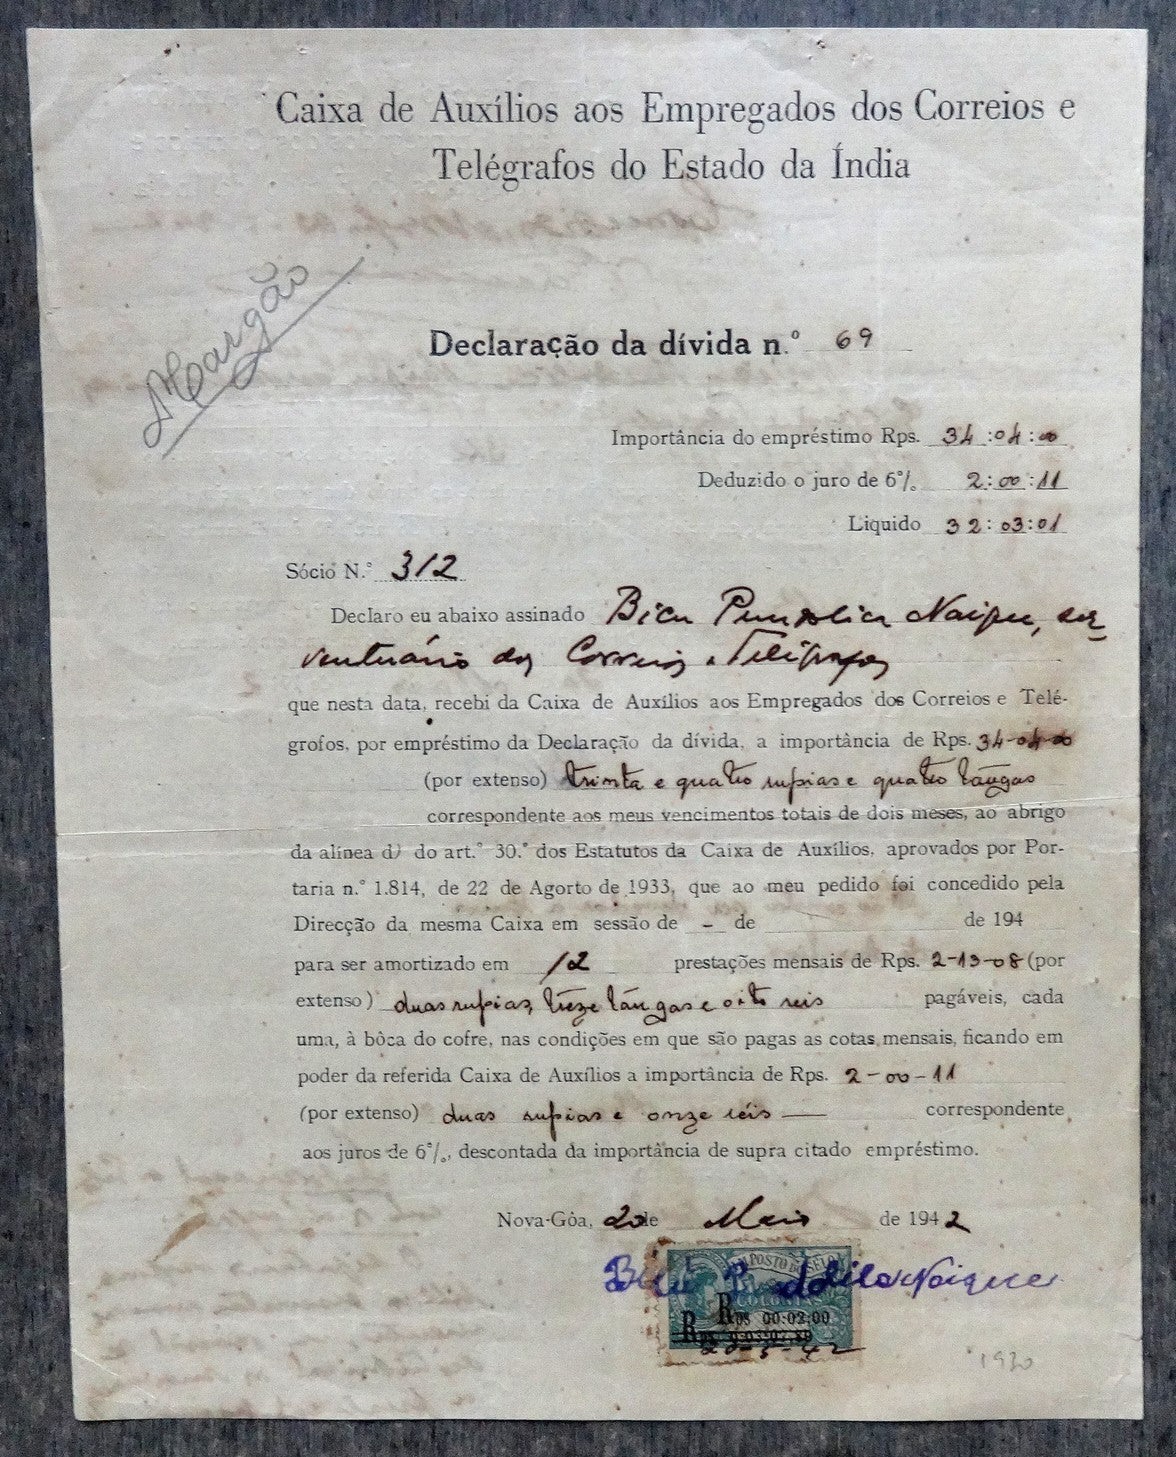 Caixa de Auxílios aos Empregados dos Correios e
Telégrafos do Estado da Índia
Margão
Declaração da dívida n.º 69
Importância do empréstimo Rps. 34:04:00
Deduzido o juro de 6% 2:00:11
Liquido 32:03:01
Sócio N.º 312
Declaro eu abaixo assinado Bicu Naique, ser-
ventuário dos Correios e Telégrafos
que nesta data, recebi da Caixa de Auxílios aos Empregados dos Correios e Telé-
grofos, por empréstimo da Declaração da dívida, a importância de Rps. 34-04-00
(por extenso) trinta e quatro rupias e quatro tangas
correspondente aos meus vencimentos totais de dois meses, ao abrigo
da alínea d) do art.º 30.º dos Estatutos da Caixa de Auxílios, aprovados por Por-
taria n.º 1.814, de 22 de Agorto de 1933, que ao meu pedido foi concedido pela
Direcção da mesma Caixa em sessão de - de de 194
para ser amortizado em 12 prestações mensais de Rps. 2-13-08 (por
extenso) duas rupias, treze tangas e oito reis pagáveis, cada
uma, à bôca do cofre, nas condições em que são pagas as cotas mensais, ficando em
poder da referida Caixa de Auxílios a importância de Rps. 2-00-11
(por extenso) duas rupias e onze réis — correspondente
aos juros de 6%, descontada da importância de supra citado empréstimo.
Nova-Gôa, 20 de Maio de 1942
IMPOSTO DO SELO
Bicu Naique
Rps 00:02:00
Rps
20-5-42
1920